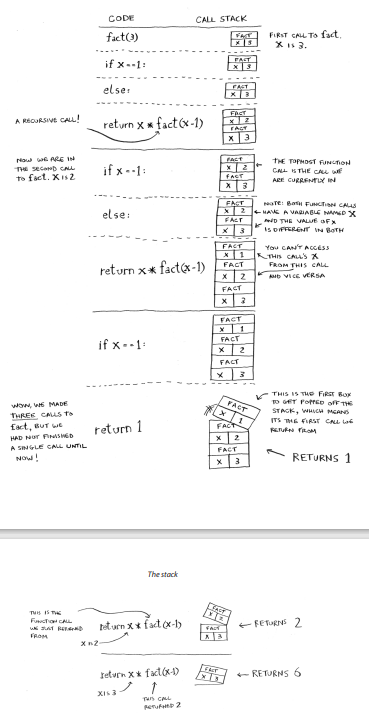 CODE CALL STACK
fact(3)
FACT
X 3
FIRST CALL TO fact.
X IS 3.
if x==1:
FACT
X 3
else:
FACT
X 3
A RECURSIVE CALL!
return x * fact(x-1)
FACT
X 2
FACT
X 3
NOW WE ARE IN
THE SECOND CALL
TO fact. X IS 2
if x==1:
FACT
X 2
FACT
X 3
THE TOPMOST FUNCTION
CALL IS THE CALL WE
ARE CURRENTLY IN
else:
FACT
X 2
FACT
X 3
NOTE: BOTH FUNCTION CALLS
HAVE A VARIABLE NAMED X
AND THE VALUE OF X
IS DIFFERENT IN BOTH
return x * fact(x-1)
FACT
X 1
FACT
X 2
FACT
X 3
YOU CAN'T ACCESS
THIS CALL'S X
FROM THIS CALL
AND VICE VERSA
if x==1:
FACT
X 1
FACT
X 2
FACT
X 3
WOW, WE MADE
THREE CALLS TO
fact, BUT WE
HAD NOT FINISHED
A SINGLE CALL UNTIL
NOW!
return 1
FACT
X 1
FACT
X 2
FACT
X 3
THIS IS THE FIRST BOX
TO GET POPPED OFF THE
STACK, WHICH MEANS
ITS THE FIRST CALL WE
RETURN FROM
RETURNS 1
The stack
THIS IS THE
FUNCTION CALL
WE JUST RETURNED
FROM
X IS 2
return x * fact(x-1)
FACT
X 2
FACT
X 3
RETURNS 2
return x * fact(x-1)
X IS 3
THIS CALL
RETURNED 2
FACT
X 3
RETURNS 6